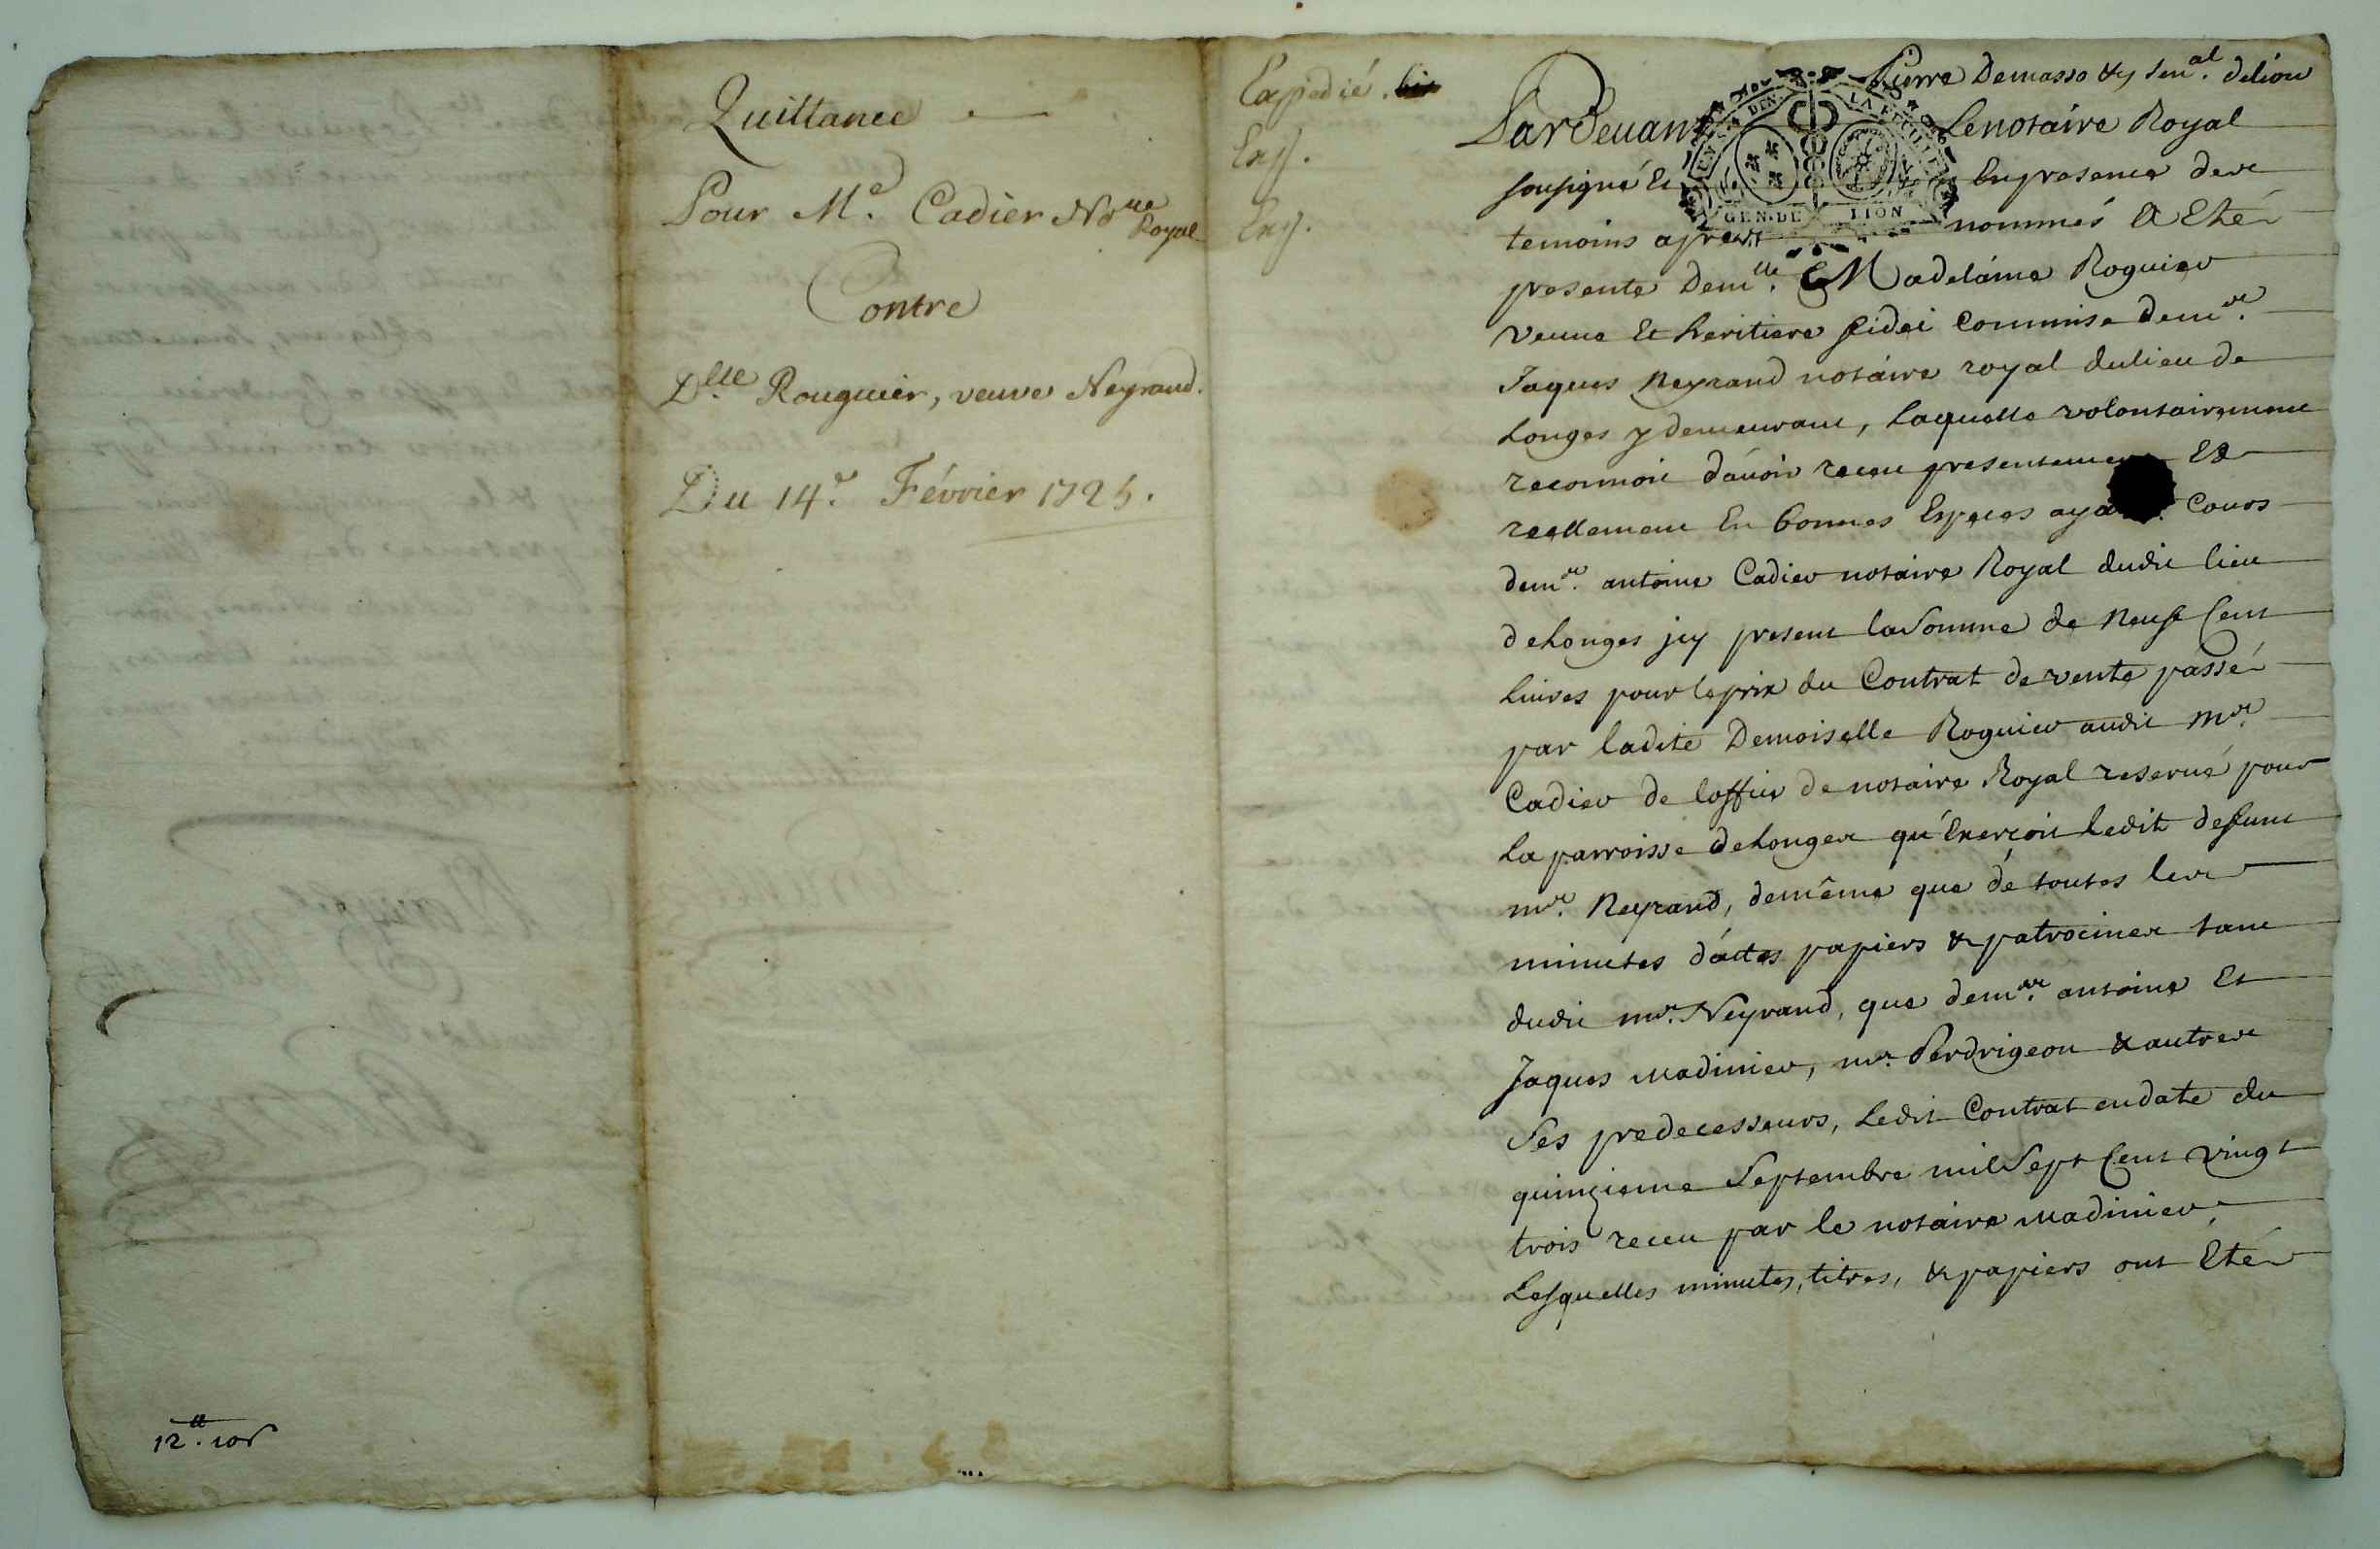 Quittance
Pour Me. Cadier No.re Royal
Contre
Dlle Rouguier, veuve Neyrand.
Du 14e. Février 1725.
12lt. 10s
Expedié.
Exp.
Exp.
Pierre Demasso Senal. delion
Pardevant Le notaire Royal
soussigné Et En presence des
temoins apres nommés A Eté
presente Demlle. Madelaine Roguier
veuve Et heritiere fidei commise de mre.
Jaques Neyrand notaire royal du lieu de
Longes y demeurant, Laquelle volontairement
reconnoit d'avoir receu presentement Et
reellement En bonnes Especes ayant Cours
de mre. antoine Cadier notaire Royal dudit lieu
de Longes icy present la Somme de Neuf Cent
Livres pour le prix du Contrat de vente passé
par ladite Demoiselle Roguier audit mre.
Cadier de loffice de notaire Royal reservé pour
La parroisse de Longes qu'Exerçoit Ledit defunt
mre. Neyrand, de même que de toutes les
minutes d'actes papiers & patrocines tant
dudit mre. Neyrand, que de mre. antoine Et
Jaques Madinier, mre. Perdrigeon & autres
Ses predecesseurs, Ledit Contrat en date du
quinzieme Septembre mil Sept Cent vingt
trois receu par le notaire Madinier,
Lesquelles minutes, titres, & papiers ont Eté
GEN. DE LION